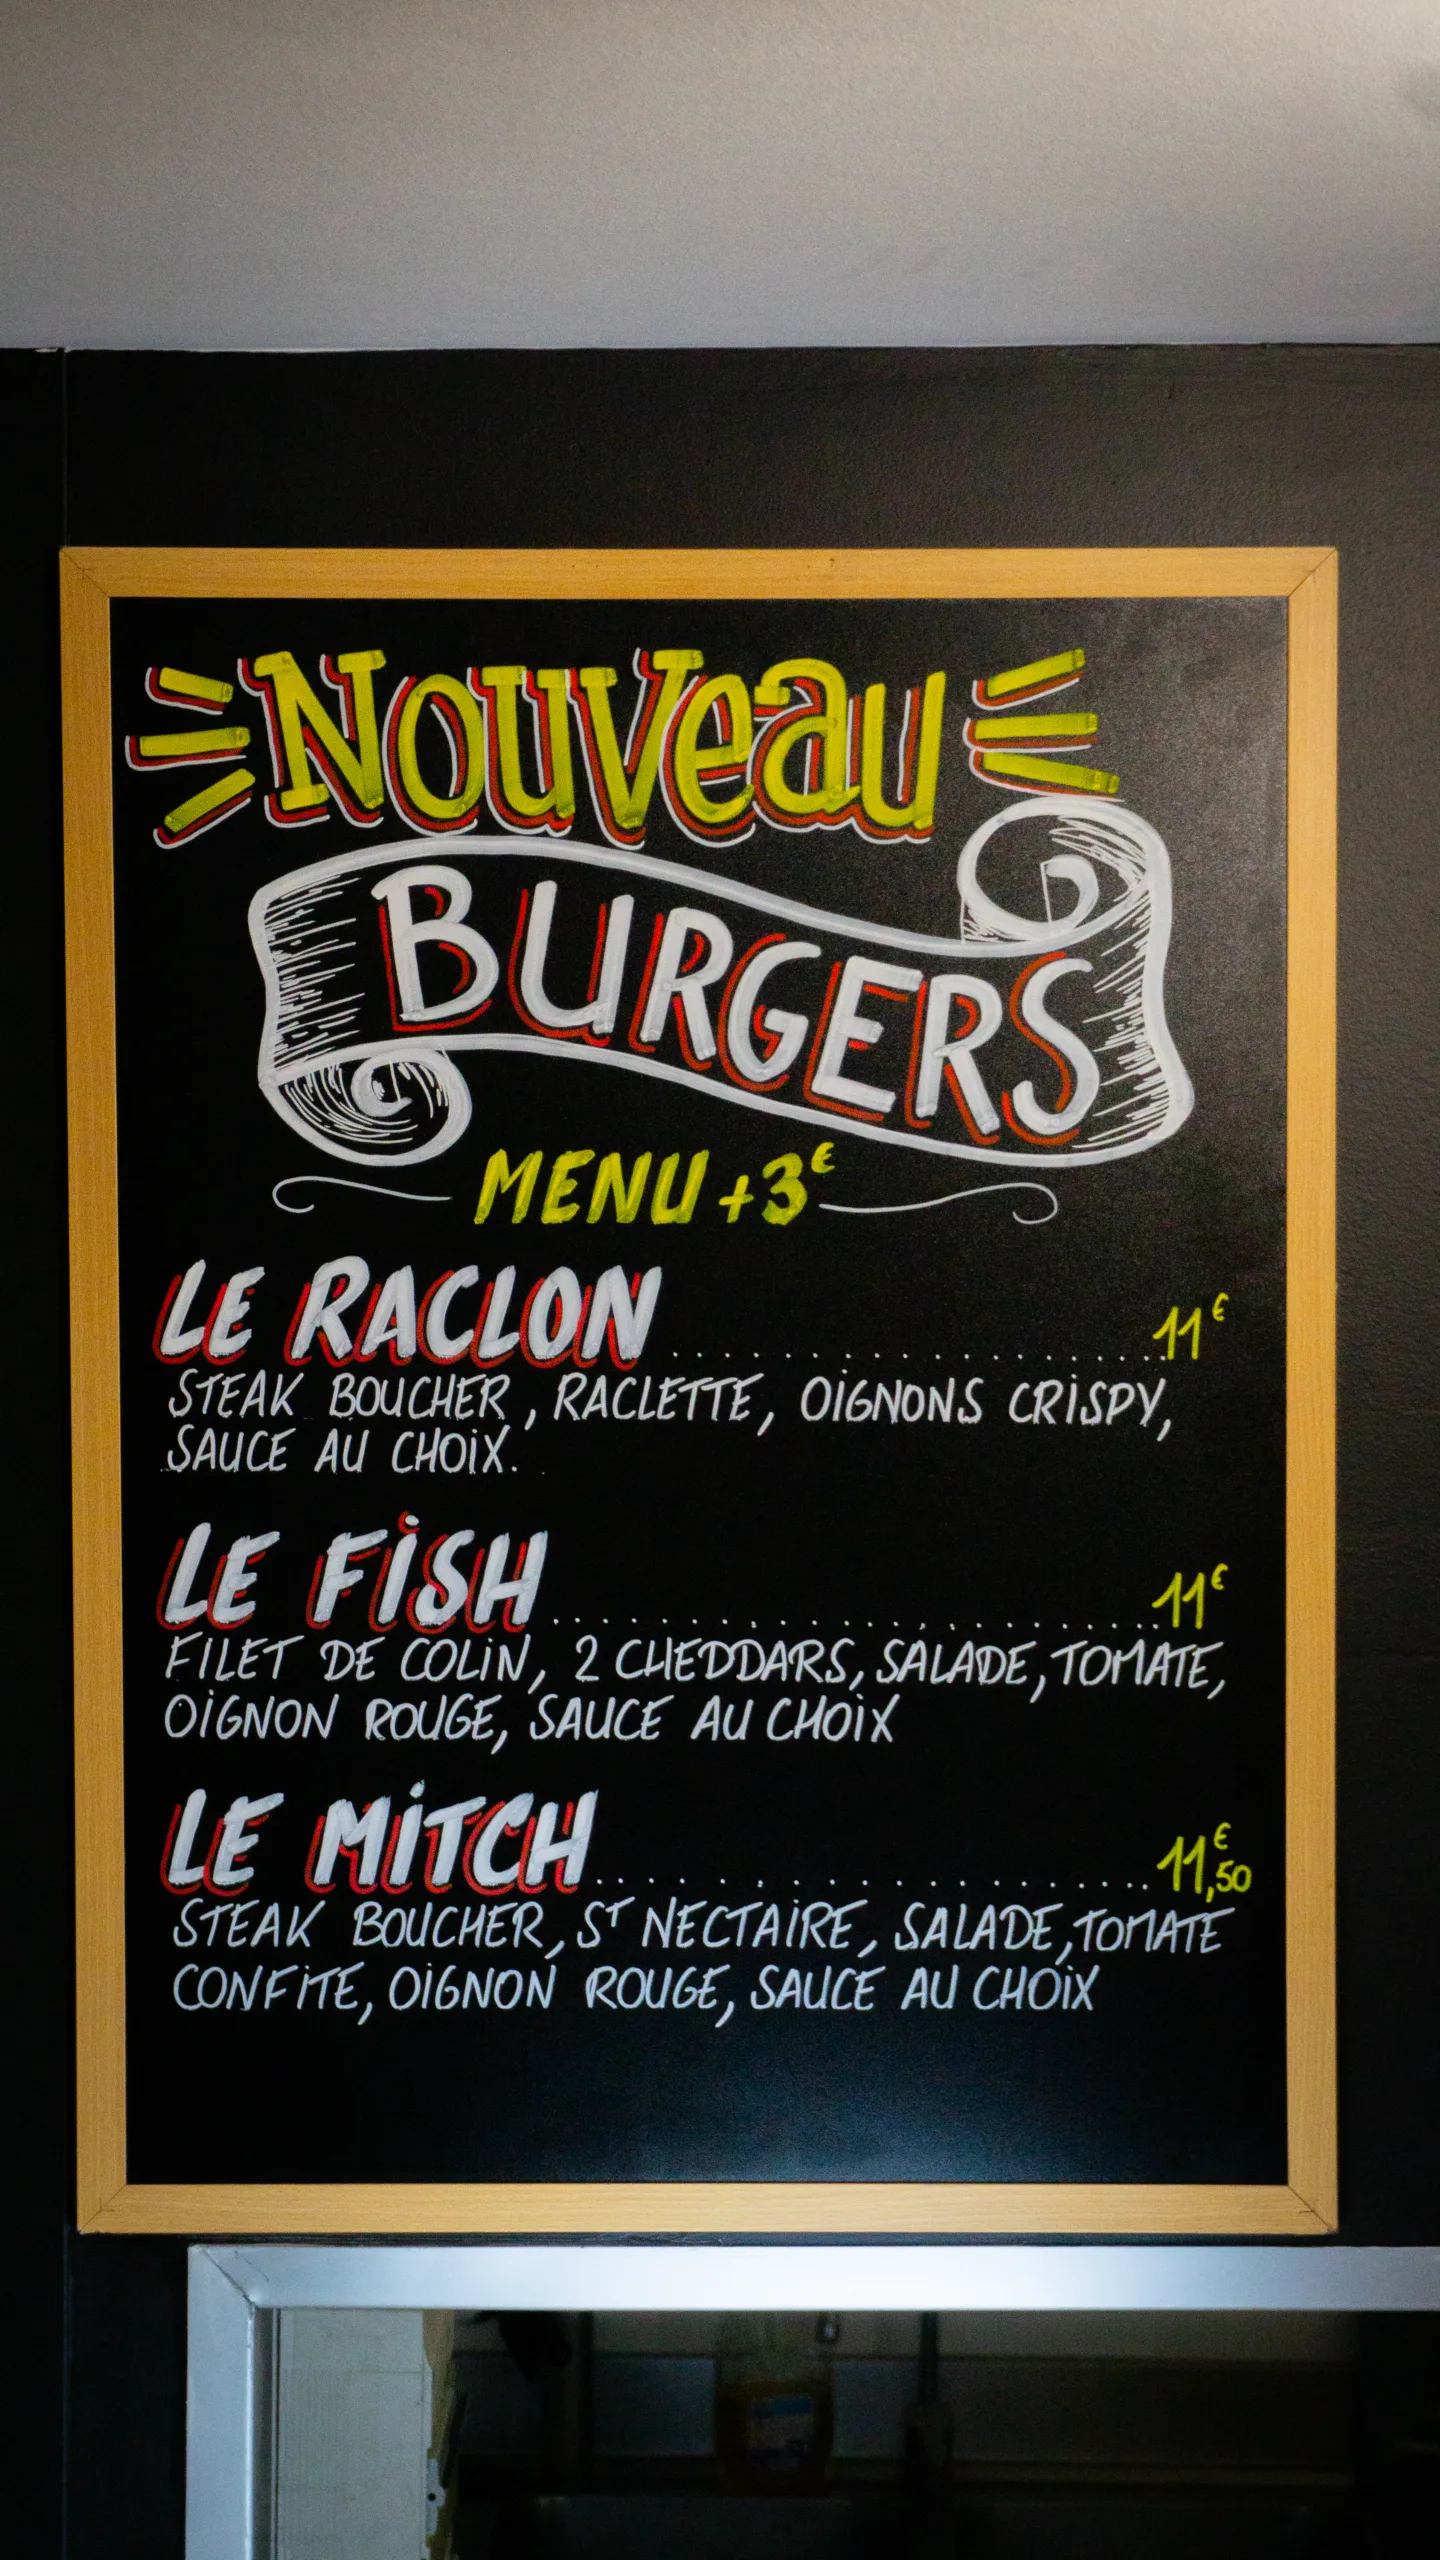 Nouveau
BURGERS
MENU +3€
LE RACLON ..................... 11€
STEAK BOUCHER, RACLETTE, OIGNONS CRISPY,
SAUCE AU CHOIX.
LE FISH ..................... 11€
FILET DE COLIN, 2 CHEDDARS, SALADE, TOMATE,
OIGNON ROUGE, SAUCE AU CHOIX
LE MITCH ..................... 11€,50
STEAK BOUCHER, ST NECTAIRE, SALADE, TOMATE
CONFITE, OIGNON ROUGE, SAUCE AU CHOIX